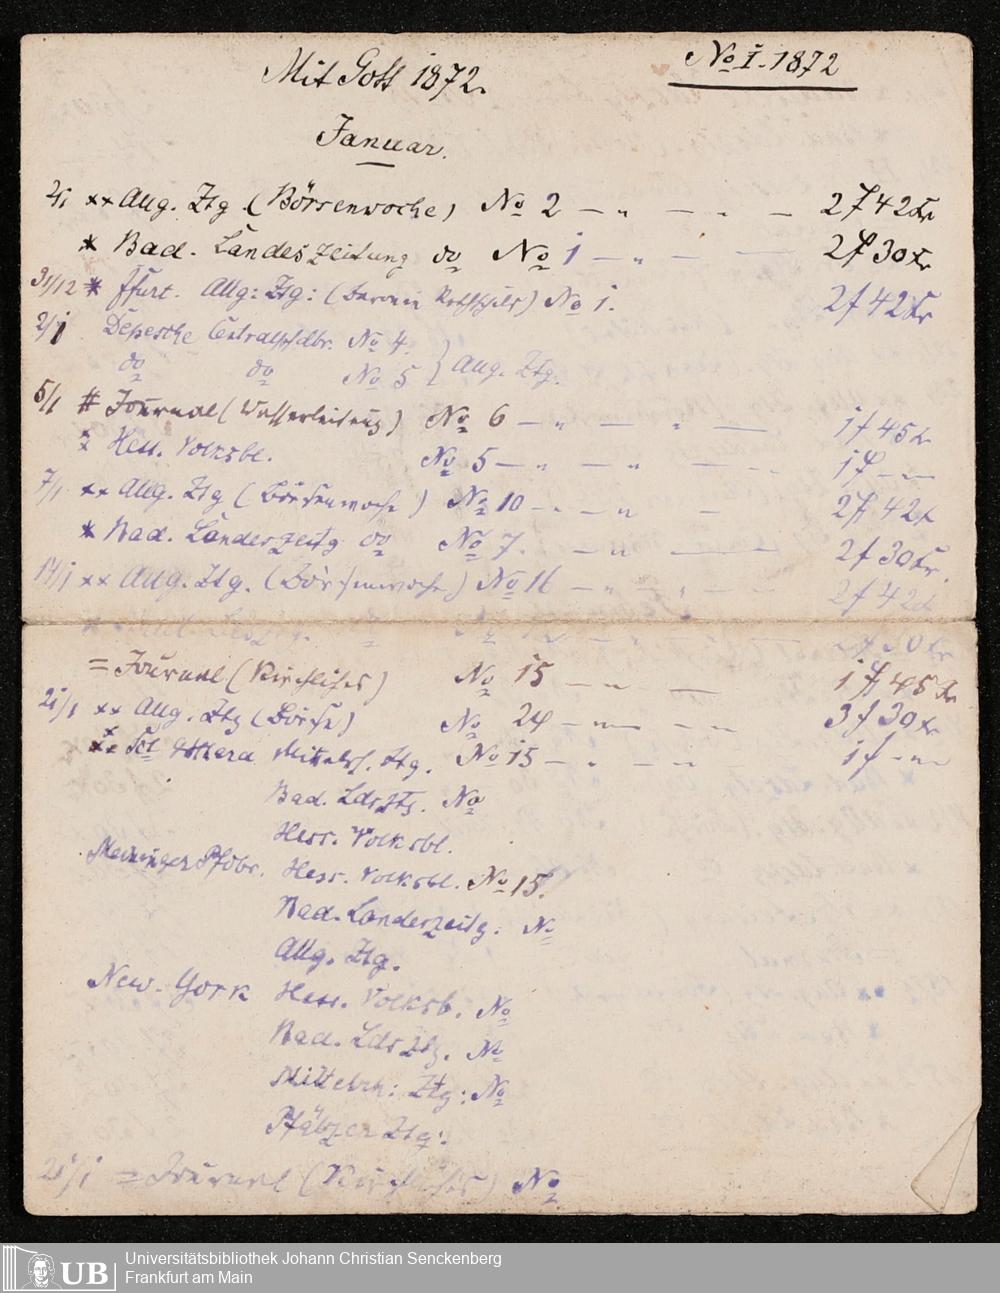 Mit Gott 1872.
No I. 1872
Januar.
2/1 ** Allg. Ztg. (Börsenwoche) No 2 — „ — „ — 2 f 42 Kr
* Bad. Landeszeitung do No 1 — „ — — 2 f 30 Kr
31/12 * Ffurt. Allg: Ztg: (Baronin Rothschild) No 1. 2 f 42 Kr
2/1 Depesche Centralpfdbr. No 4. } Allg. Ztg.
do do No 5
5/1 # Journal (Wasserleitung) No 6 — „ — „ — 1 f 45 Kr
Hess. Volksbl. No 5 — „ — „ — „ 1 f — „ —
7/1 ** Allg. Ztg (Börsenwoche) No 10 — „ — „ — 2 f 42 Kr
* Bad. Landeszeitg do No 7. — „ — 2 f 30 Kr.
14/1 ** Allg. Ztg. (Börsenwoche) No 16 — „ — „ — 2 f 42 Kr
= Journal (Kirchliches) No 15 — „ — 1 f 45 Kr
21/1 ** Allg. Ztg (Börse) No 24 — „ — „ — 3 f 30 Kr
Mittelrh. Ztg. No 15 — „ — „ — 1 f — „ —
Bad. Ldsztg. No
Hess. Volksbl.
Meininger Pfdbr. Hess. Volksbl. No 15.
Bad. Landeszeitg. No
Allg. Ztg.
New-York Hess. Volksb. No
Bad. Ldsztg. No
Mittelrh: Ztg: No
Pfälzer Ztg:
= Journal (Kirchliches) No
UB Universitätsbibliothek Johann Christian Senckenberg
Frankfurt am Main